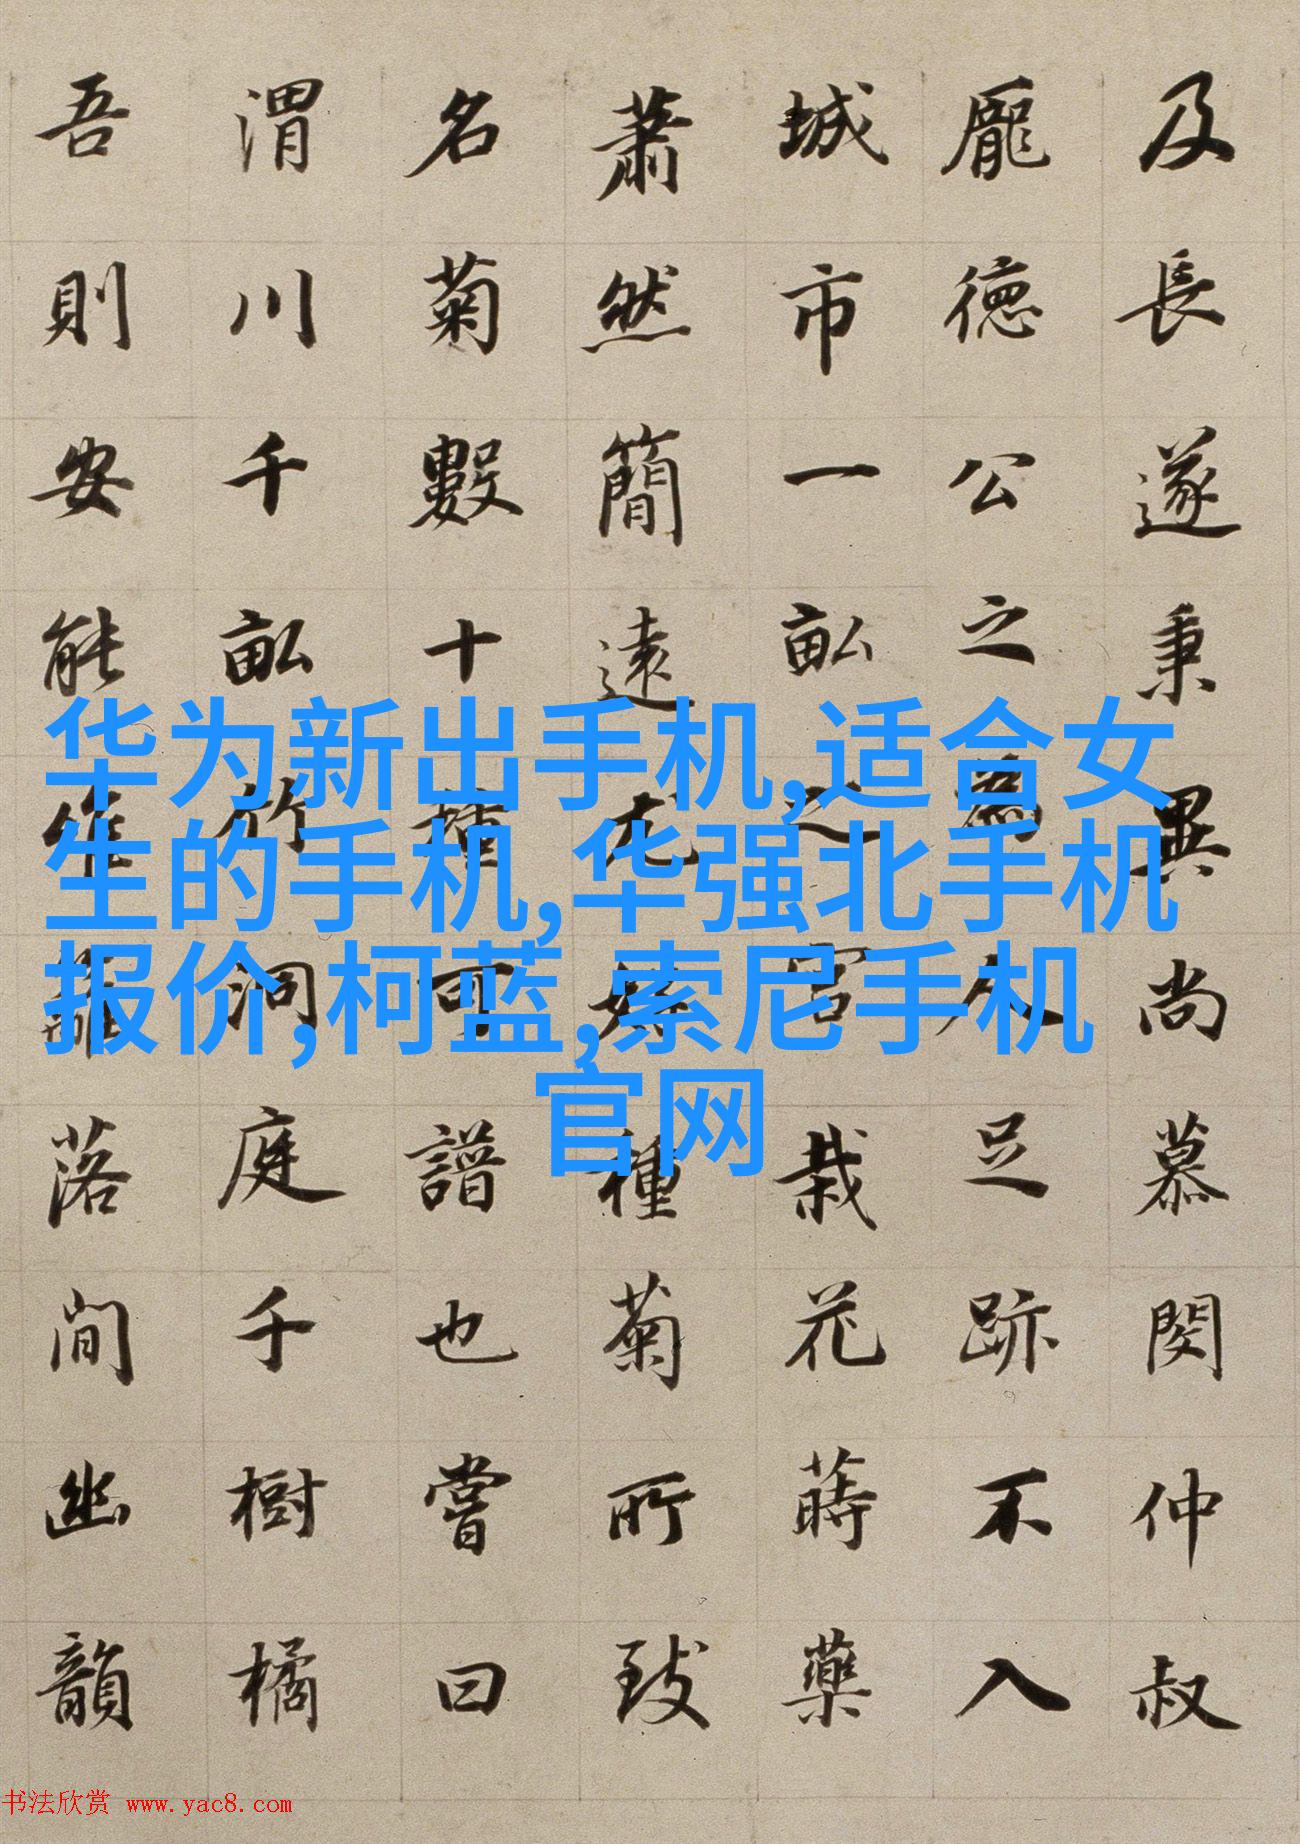 及長遂秉異尚慕閔仲叔
龐徳公之為人足跡不入
城市一畝之宮栽花蒔藥
蕭然簡遠尤好種菊所致
名菊數十種可譜也嘗曰
渭川千畝竹洞庭千樹橘
吾則安能惟籬落間幽韻
华为新出手机,适合女
生的手机,华强北手机
报价,柯蓝,索尼手机
官网
书法欣赏 www.yac8.com